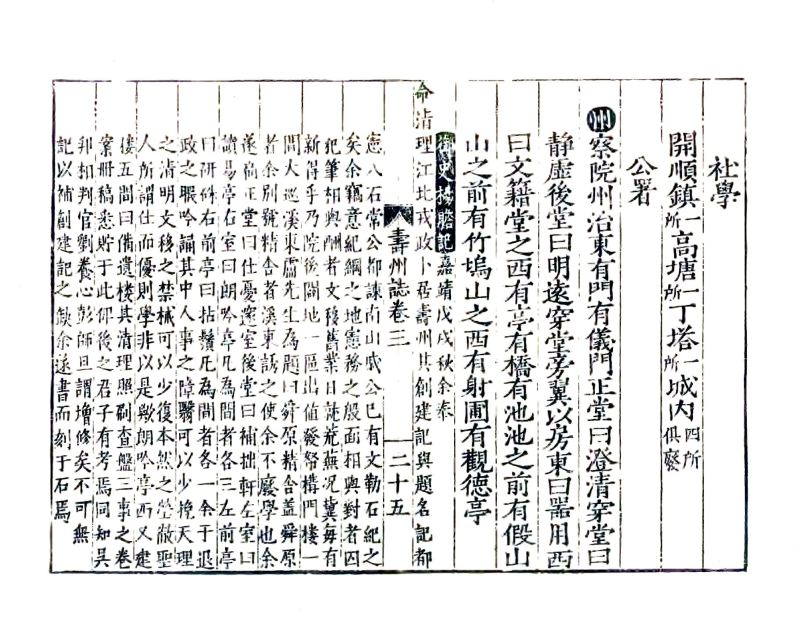 社學
開順鎮一所高塘一所丁塔一所城内四所俱廢
公署
州察院州治東有門有儀門正堂曰澄清穿堂曰
靜虛後堂曰明遠穿堂旁翼以房東曰器用西
曰文籍堂之西有亭有橋有池池之前有假山
山之前有竹塢山之西有射圃有觀德亭
御史楊瞻記嘉靖戊戌秋余奉
命清理江北戎政卜居壽州其創建記與題名記都
壽州誌卷三 二十五
憲八石常公都諫南山戚公已有文勒石紀之
矣余竊意紀綱之地憲務之殷面相與對者囚
犯筆相與酬者文移舊業日就荒蕪况冀每有
新得乎乃院後閑地一區出值發帑構門樓一
間大巡溪東盧先生為題曰舜原精舎蓋舜原
者余别號精舎者溪東誘之使余不廢學也余
遂扁正堂曰仕優室後堂曰補拙軒左室曰
讀易亭石室曰朗吟亭凡為間者各三左前亭
曰研硃右前亭曰拈鬚凡為間者各一余于退
政之暇吟誦其中人事之障翳可以少撩天理
之清明文移之禁械可以少復本然之瑩徹聖
人所謂仕而優則學非以是歟朗吟亭西又建
樓五間曰備遺樓其清理照刷查盤三事之卷
案册稿悉貯于此俾後之君子有考焉同知吳
邦相判官劉養心彭師旦謂增修矣不可無
記以補創建記之缺余遂書而刻于石焉